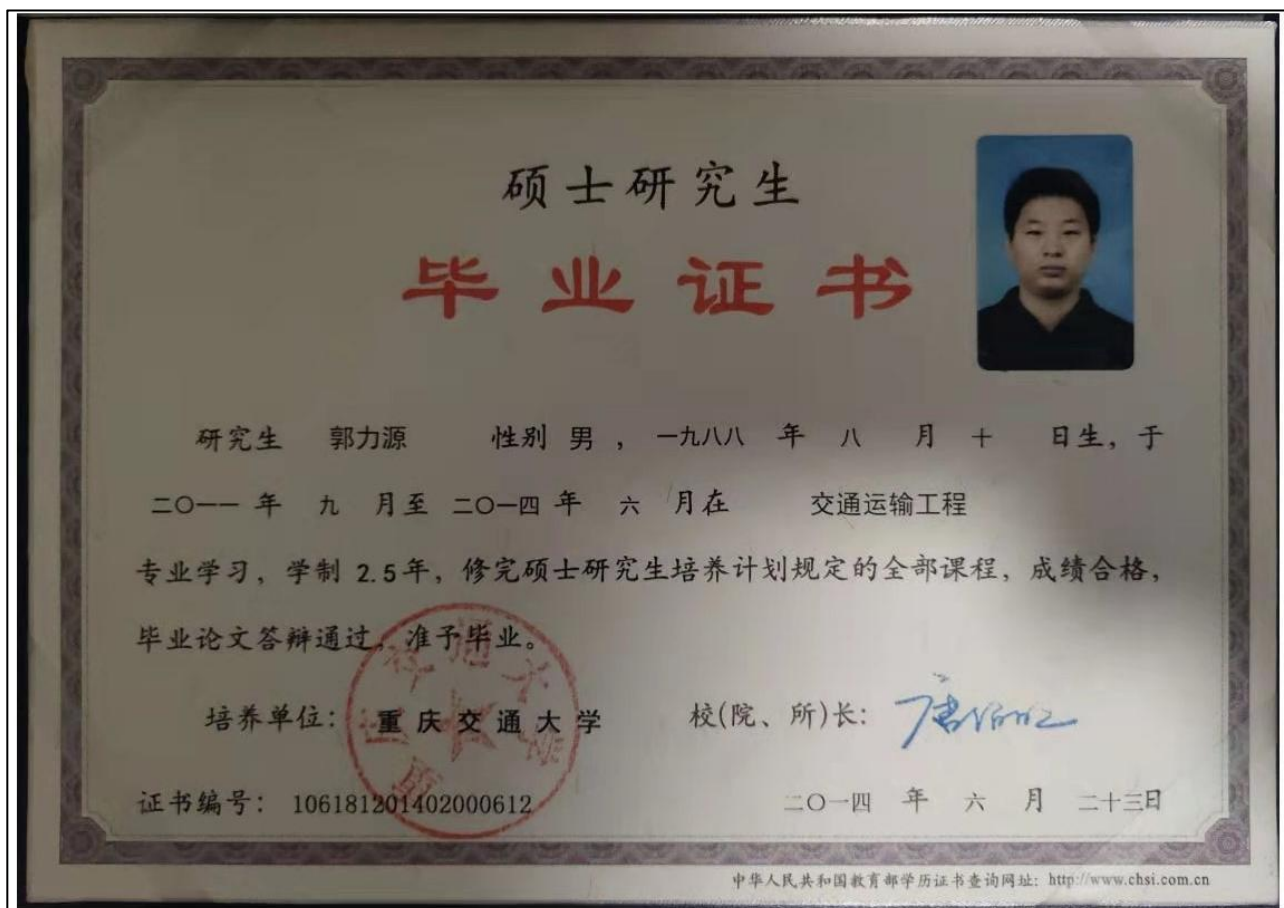 硕士研究生
毕业证书
研究生 郭力源 性别 男 , 一九八八 年 八 月 十 日生, 于
二〇一一 年 九 月至 二〇一四 年 六 月在 交通运输工程
专业学习, 学制 2.5年, 修完硕士研究生培养计划规定的全部课程, 成绩合格,
毕业论文答辩通过, 准予毕业。
培养单位: 重庆交通大学 校(院、所)长:
证书编号: 106181201402000612 二〇一四 年 六 月 二十三日
中华人民共和国教育部学历证书查询网址: http://www.chsi.com.cn